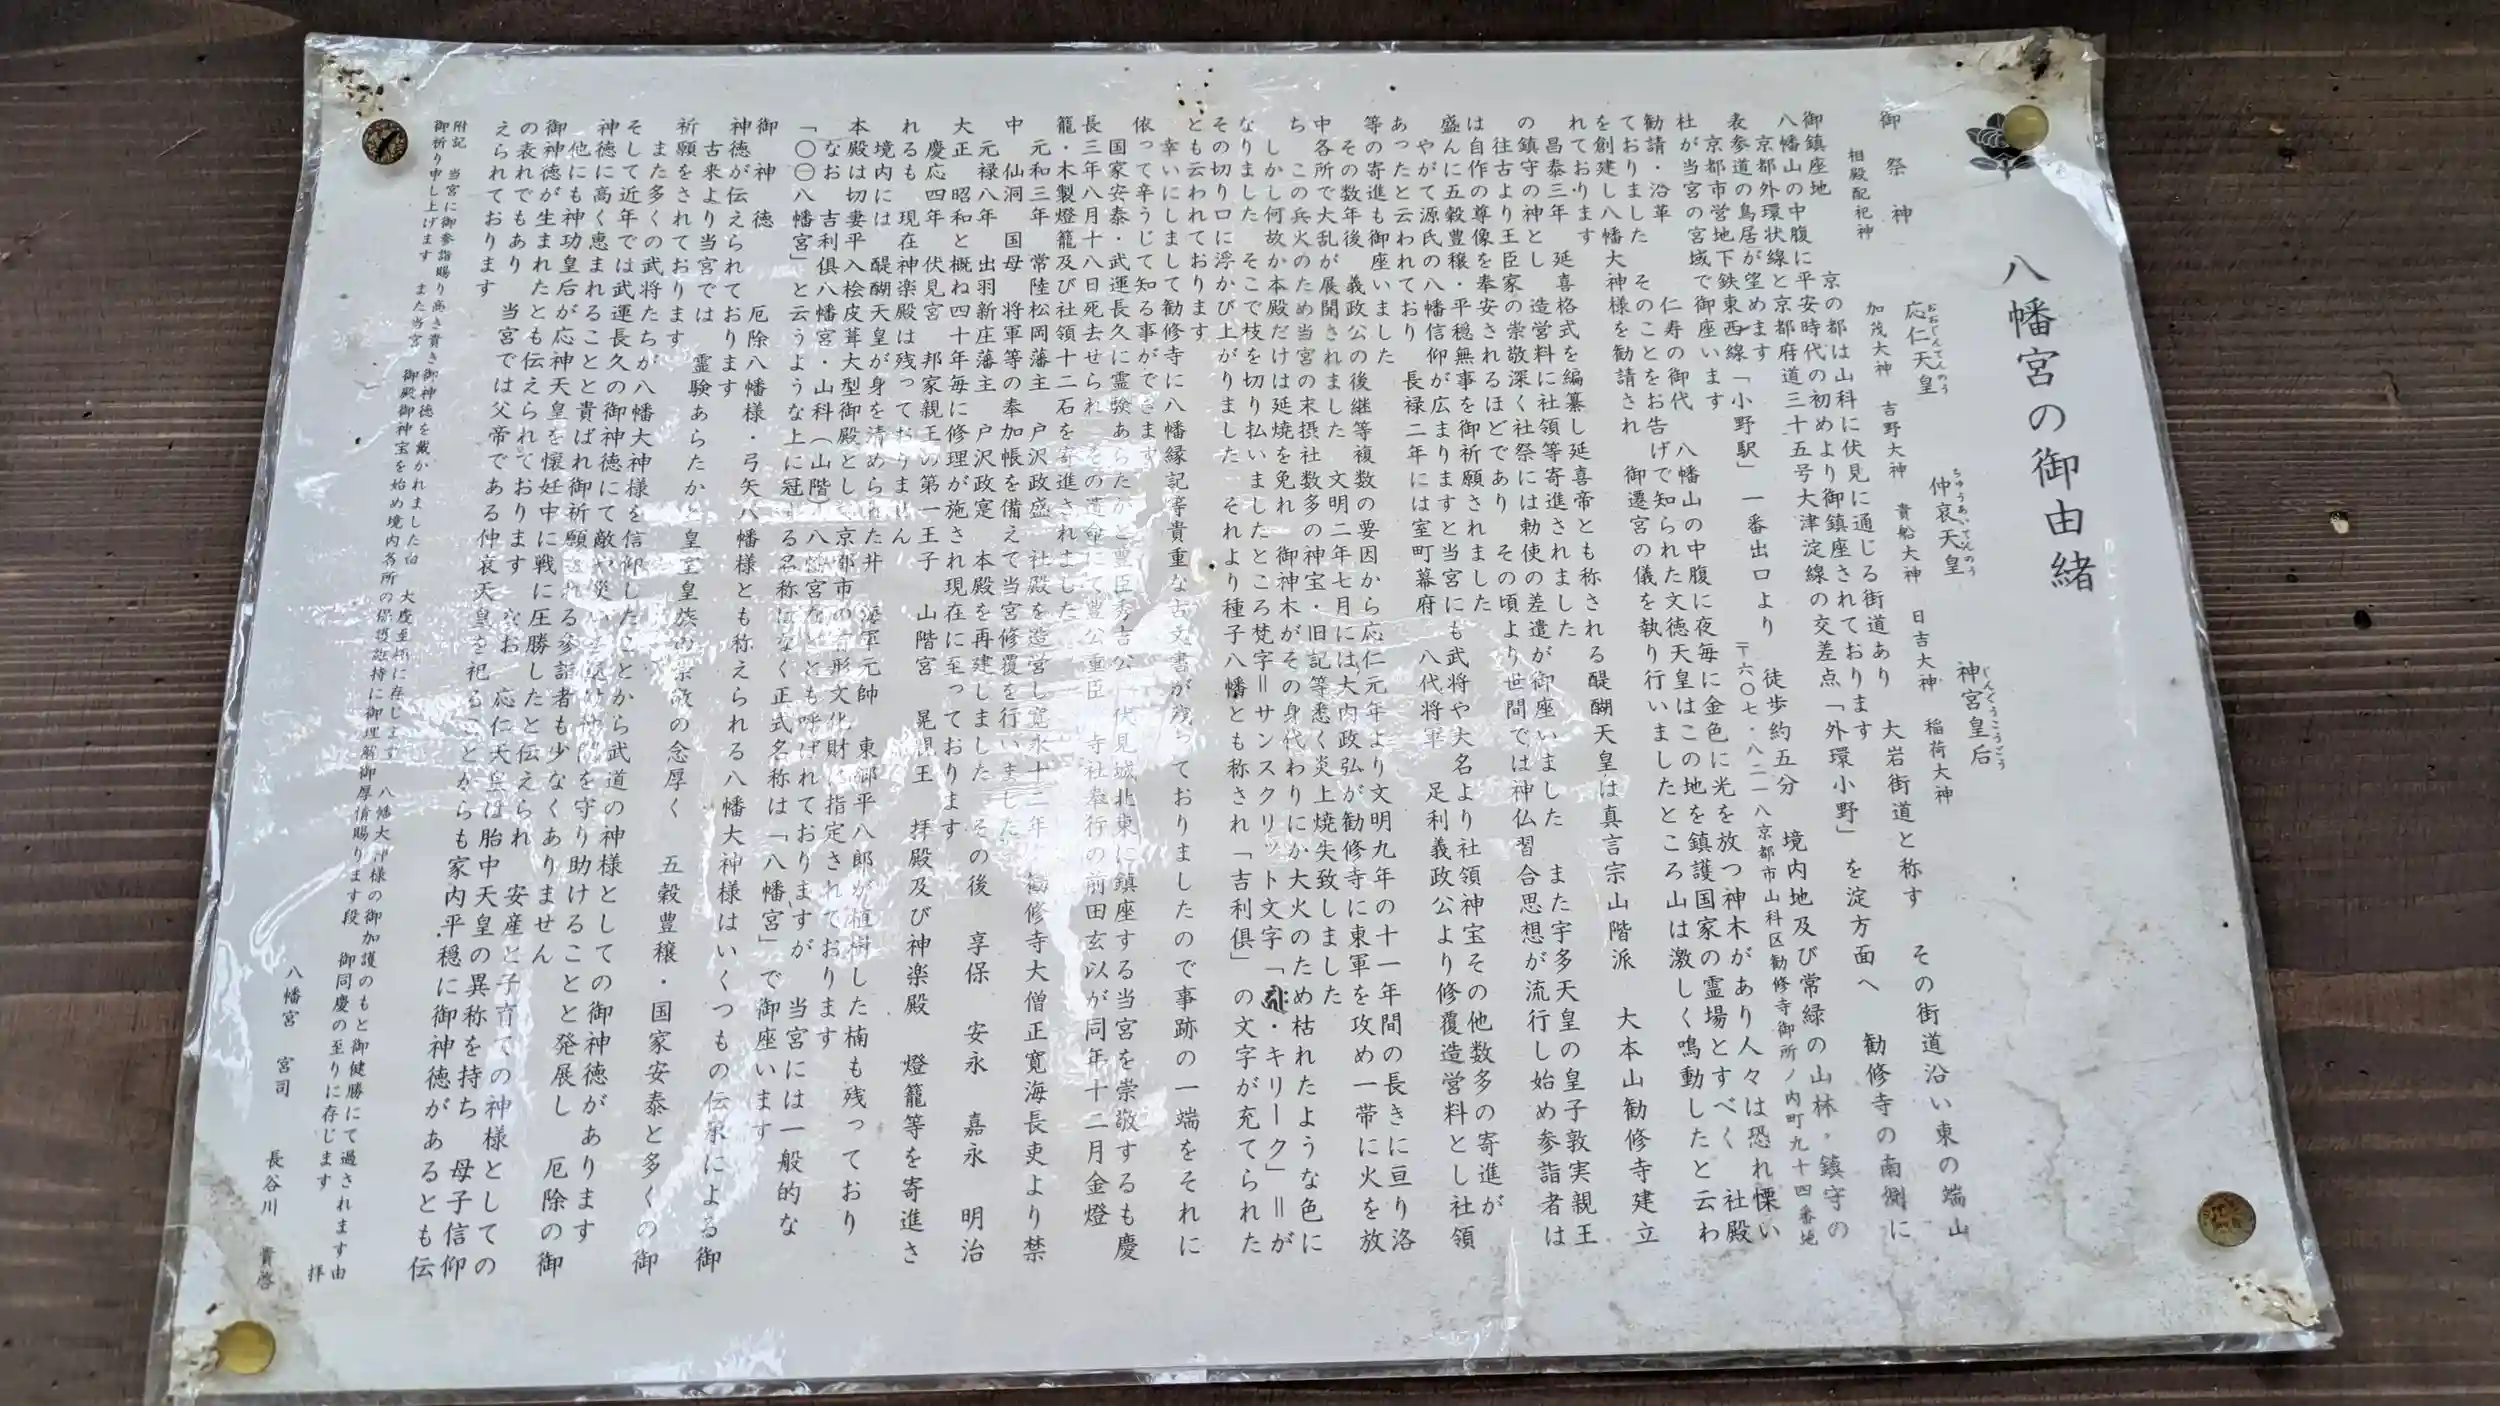 八幡宮の御由緒
御祭神 応仁天皇 仲哀天皇 神宮皇后
おおじんてんのう ちゅうあいてんのう じんぐうこうごう
相殿配祀神 加茂大神 吉野大神 貴船大神 日吉大神 稲荷大神
御鎮座地 京の都は山科に伏見に通じる街道あり 大岩街道と称す その街道沿い東の端山
八幡山の中腹に平安時代の初めより御鎮座されております
京都外環状線と京都府道三十五号大津淀線の交差点「外環小野」を淀方面へ 勧修寺の南側に
表参道の鳥居が望めます
京都市営地下鉄東西線「小野駅」一番出口より 徒歩約五分 境内地及び常緑の山林・鎮守の
杜が当宮の宮域で御座います 〒六〇七・八二一八京都市山科区勧修寺御所ノ内町九十四番地
勧請・沿革 仁寿の御代 八幡山の中腹に夜毎に金色に光を放つ神木があり人々は恐れ慄い
ておりました そのことをお告げで知られた文徳天皇はこの地を鎮護国家の霊場とすべく 社殿
を創建し八幡大神様を勧請され 御遷宮の儀を執り行いましたところ山は激しく鳴動したと云わ
れております
昌泰三年 延喜格式を編纂し延喜帝とも称される醍醐天皇は真言宗山階派 大本山勧修寺建立
の鎮守の神とし 造営料に社領等寄進されました
往古より王臣家の崇敬深く社祭には勅使の差遣が御座いました また宇多天皇の皇子敦実親王
は自作の尊像を奉安されるほどであり その頃より世間では神仏習合思想が流行し始め参詣者は
盛んに五穀豊穣・平穏無事を御祈願されました
やがて源氏の八幡信仰が広まりますと当宮にも武将や大名より社領神宝その他数多の寄進が
あったと云われており 長禄二年には室町幕府 八代将軍 足利義政公より修覆造営料とし社領
等の寄進も御座いました
その数年後 義政公の後継等複数の要因から応仁元年より文明九年の十一年間の長きに亘り洛
中各所で大乱が展開されました 文明二年七月には大内政弘が勧修寺に東軍を攻め一帯に火を放
ち この兵火のため当宮の末摂社数多の神宝・旧記等悉く炎上焼失致しました
しかし何故か本殿だけは延焼を免れ 御神木がその身代わりにか大火のため枯れたような色に
なりました そこで枝を切り払いましたところ梵字＝サンスクリット文字「・キリーク」＝が
その切り口に浮かび上がりました それより種子八幡とも称され「吉利倶」の文字が充てられた
とも云われております
幸いにしまして勧修寺に八幡縁記等貴重な古文書が残っておりましたので事跡の一端をそれに
依って辛うじて知る事ができます
国家安泰・武運長久に霊験あらたかと豊臣秀吉公 伏見城北東に鎮座する当宮を崇敬するも慶
長三年八月十八日死去せられ その遺命にて豊公重臣 寺社奉行の前田玄以が同年十二月金燈
籠・木製燈籠及び社領十二石を寄進されました
元和三年 常陸松岡藩主 戸沢政盛 社殿を造営し寛永十二年 勧修寺大僧正寛海長吏より禁
中 仙洞 国母 将軍等の奉加帳を備えて当宮修覆を行いました
元禄八年 出羽新庄藩主 戸沢政寔 本殿を再建しました その後 享保 安永 嘉永 明治
大正 昭和と概ね四十年毎に修理が施され現在に至っております
慶応四年 伏見宮 邦家親王の第一王子 山階宮 晃親王 拝殿及び神楽殿 燈籠等を寄進さ
れるも 現在神楽殿は残っておりません
境内には 醍醐天皇が身を清められた井 海軍元帥 東郷平八郎が植樹した楠も残っており
本殿は切妻平入桧皮葺大型御殿とし 京都市の有形文化財に指定されております
なお 吉利倶八幡宮・山科（山階）八幡宮などとも呼ばれておりますが 当宮には一般的な
「〇〇八幡宮」と云うような上に冠する名称はなく正式名称は「八幡宮」で御座います
御神徳 厄除八幡様・弓矢八幡様とも称えられる八幡大神様はいくつもの伝承による御
神徳が伝えられております
古来より当宮では 霊験あらたかと皇室皇族の崇敬の念厚く 五穀豊穣・国家安泰と多くの御
祈願をされております
また多くの武将たちが八幡大神様を信仰したことから武道の神様としての御神徳があります
そして近年では武運長久の御神徳にて敵や災い を守り助けることと発展し 厄除の御
神徳に高く恵まれることと貴ばれ御祈願される参詣者も少なくありません
他にも神功皇后が応神天皇を懐妊中に戦に圧勝したと伝えられ 安産と子育ての神様としての
御神徳が生まれたとも伝えられております なお 応仁天皇は胎中天皇の異称を持ち 母子信仰
の表れでもあり 当宮では父帝である仲哀天皇を祀ることからも家内平穏に御神徳があるとも伝
えられております
附記 当宮に御参詣賜り高き貴き御神徳を戴かれました由 大慶至極に存じます 八幡大神様の御加護のもと御健勝にて過されます由
御祈り申し上げます また当宮 御殿御神宝を始め境内各所の保護維持に御理解御厚情賜ります段 御同慶の至りに存じます 拝
八幡宮 宮司 長谷川 貴啓